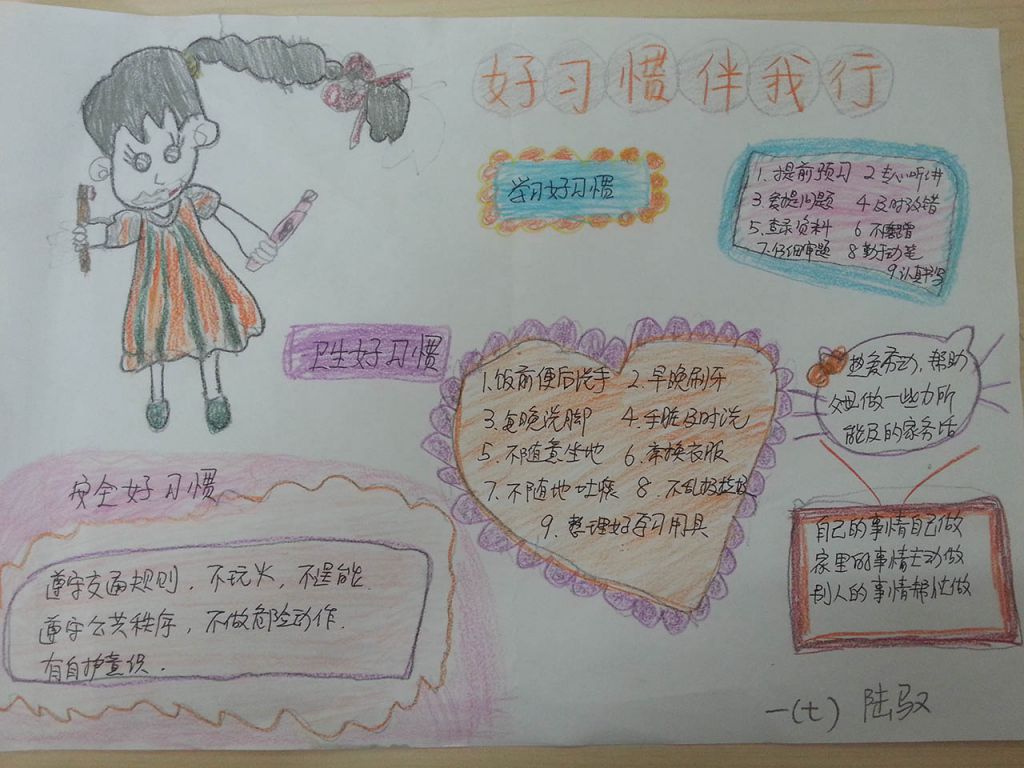 好习惯伴我行
学习好习惯
1.提前预习 2专心听讲
3会提问题 4及时改错
5.查录资料 6不磨蹭
7.仔细审题 8勤动笔
9认真书写
卫生好习惯
1.饭前便后洗手 2.早晚刷牙
3.每晚洗脚 4.手脏及时洗
5.不随意坐地 6.常换衣服
7.不随地吐痰 8.不乱扔垃圾
9.整理好学习用具
热爱劳动,帮助
父母做一些力所
能及的家务活
安全好习惯
遵守交通规则,不玩火,不逞能.
遵守公共秩序,不做危险动作.
有自护意识.
自己的事情自己做
家里的事情主动做
别人的事情帮忙做
一(七) 陆驭